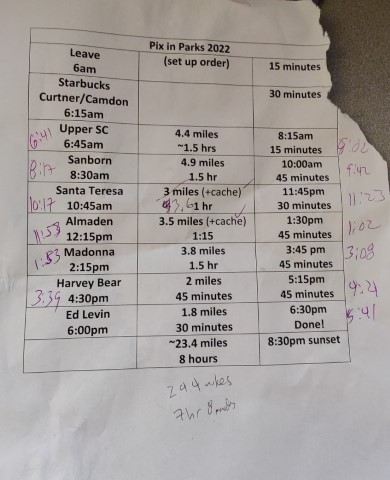 Pix in Parks 2022
Leave (set up order) 15 minutes
6am
Starbucks 30 minutes
Curtner/Camdon
6:15am
6:41 Upper SC 4.4 miles 8:15am
6:45am ~1.5 hrs 15 minutes 8:02
8:17 Sanborn 4.9 miles 10:00am
8:30am 1.5 hr 45 minutes 9:42
Santa Teresa 3 miles (+cache) 11:45pm
10:17 10:45am 3.6 1 hr 30 minutes 11:23
Almaden 3.5 miles (+cache) 1:30pm
11:53 12:15pm 1:15 45 minutes 1:02
Madonna 3.8 miles 3:45 pm
1:53 2:15pm 1.5 hr 45 minutes 3:08
Harvey Bear 2 miles 5:15pm
3:39 4:30pm 45 minutes 45 minutes 4:21
Ed Levin 1.8 miles 6:30pm
6:00pm 30 minutes Done! 5:41
~23.4 miles 8:30pm sunset
8 hours
24.4 miles
7hr 8